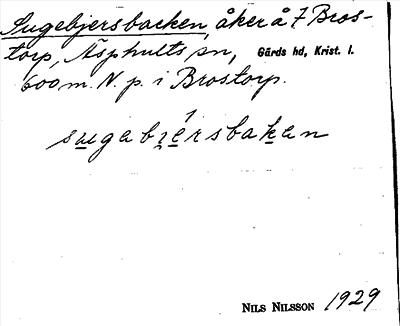 Sugebjersbacken, åker å 7 Bros-
torp, Äsphults sn, Gärds hd, Krist. l.
600 m. N. p. i Brostorp.
sugabjersbakan
NILS NILSSON 1929